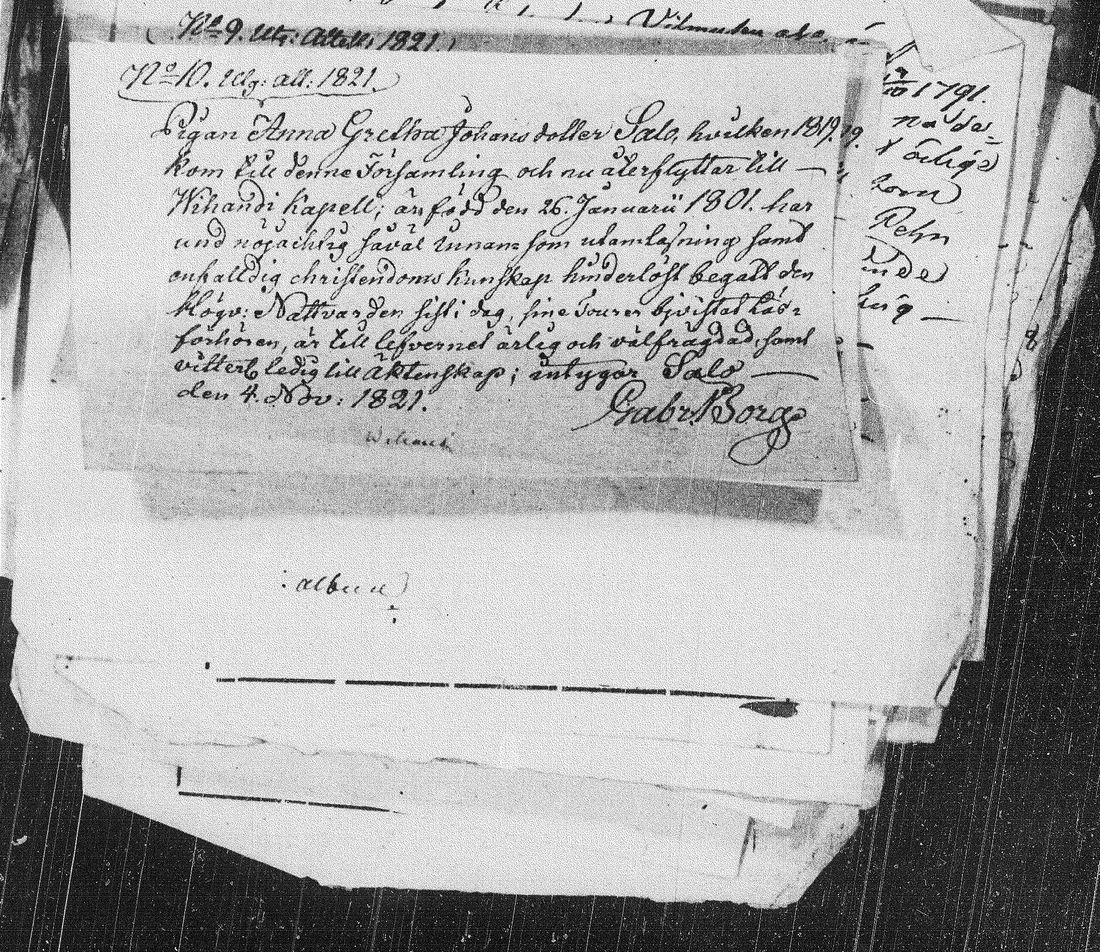 Vilmusku
No 9. Utg: Attest, 1821.
No 10. Utg: att: 1821.
Pigan Anna Gretha Johans dotter Salo, hvilken 1819.
kom till denne Församling och nu återflyttar till —
Wihandi Kapell, är född den 26. Januarii 1801. har
und nöjachtig såväl innan= som utanläsning samt
enfalldig christendoms kunskap hinderlöst begått den
Högv: Nattvarden sist i dag, sine Tourer bjvistat Läs=
förhören, är till lefvernet ärlig och välfrägdad, samt
vitterl. ledig till äktenskap; intygar Salo —
den 4. Nov: 1821.
Gabr. Borg
1791.